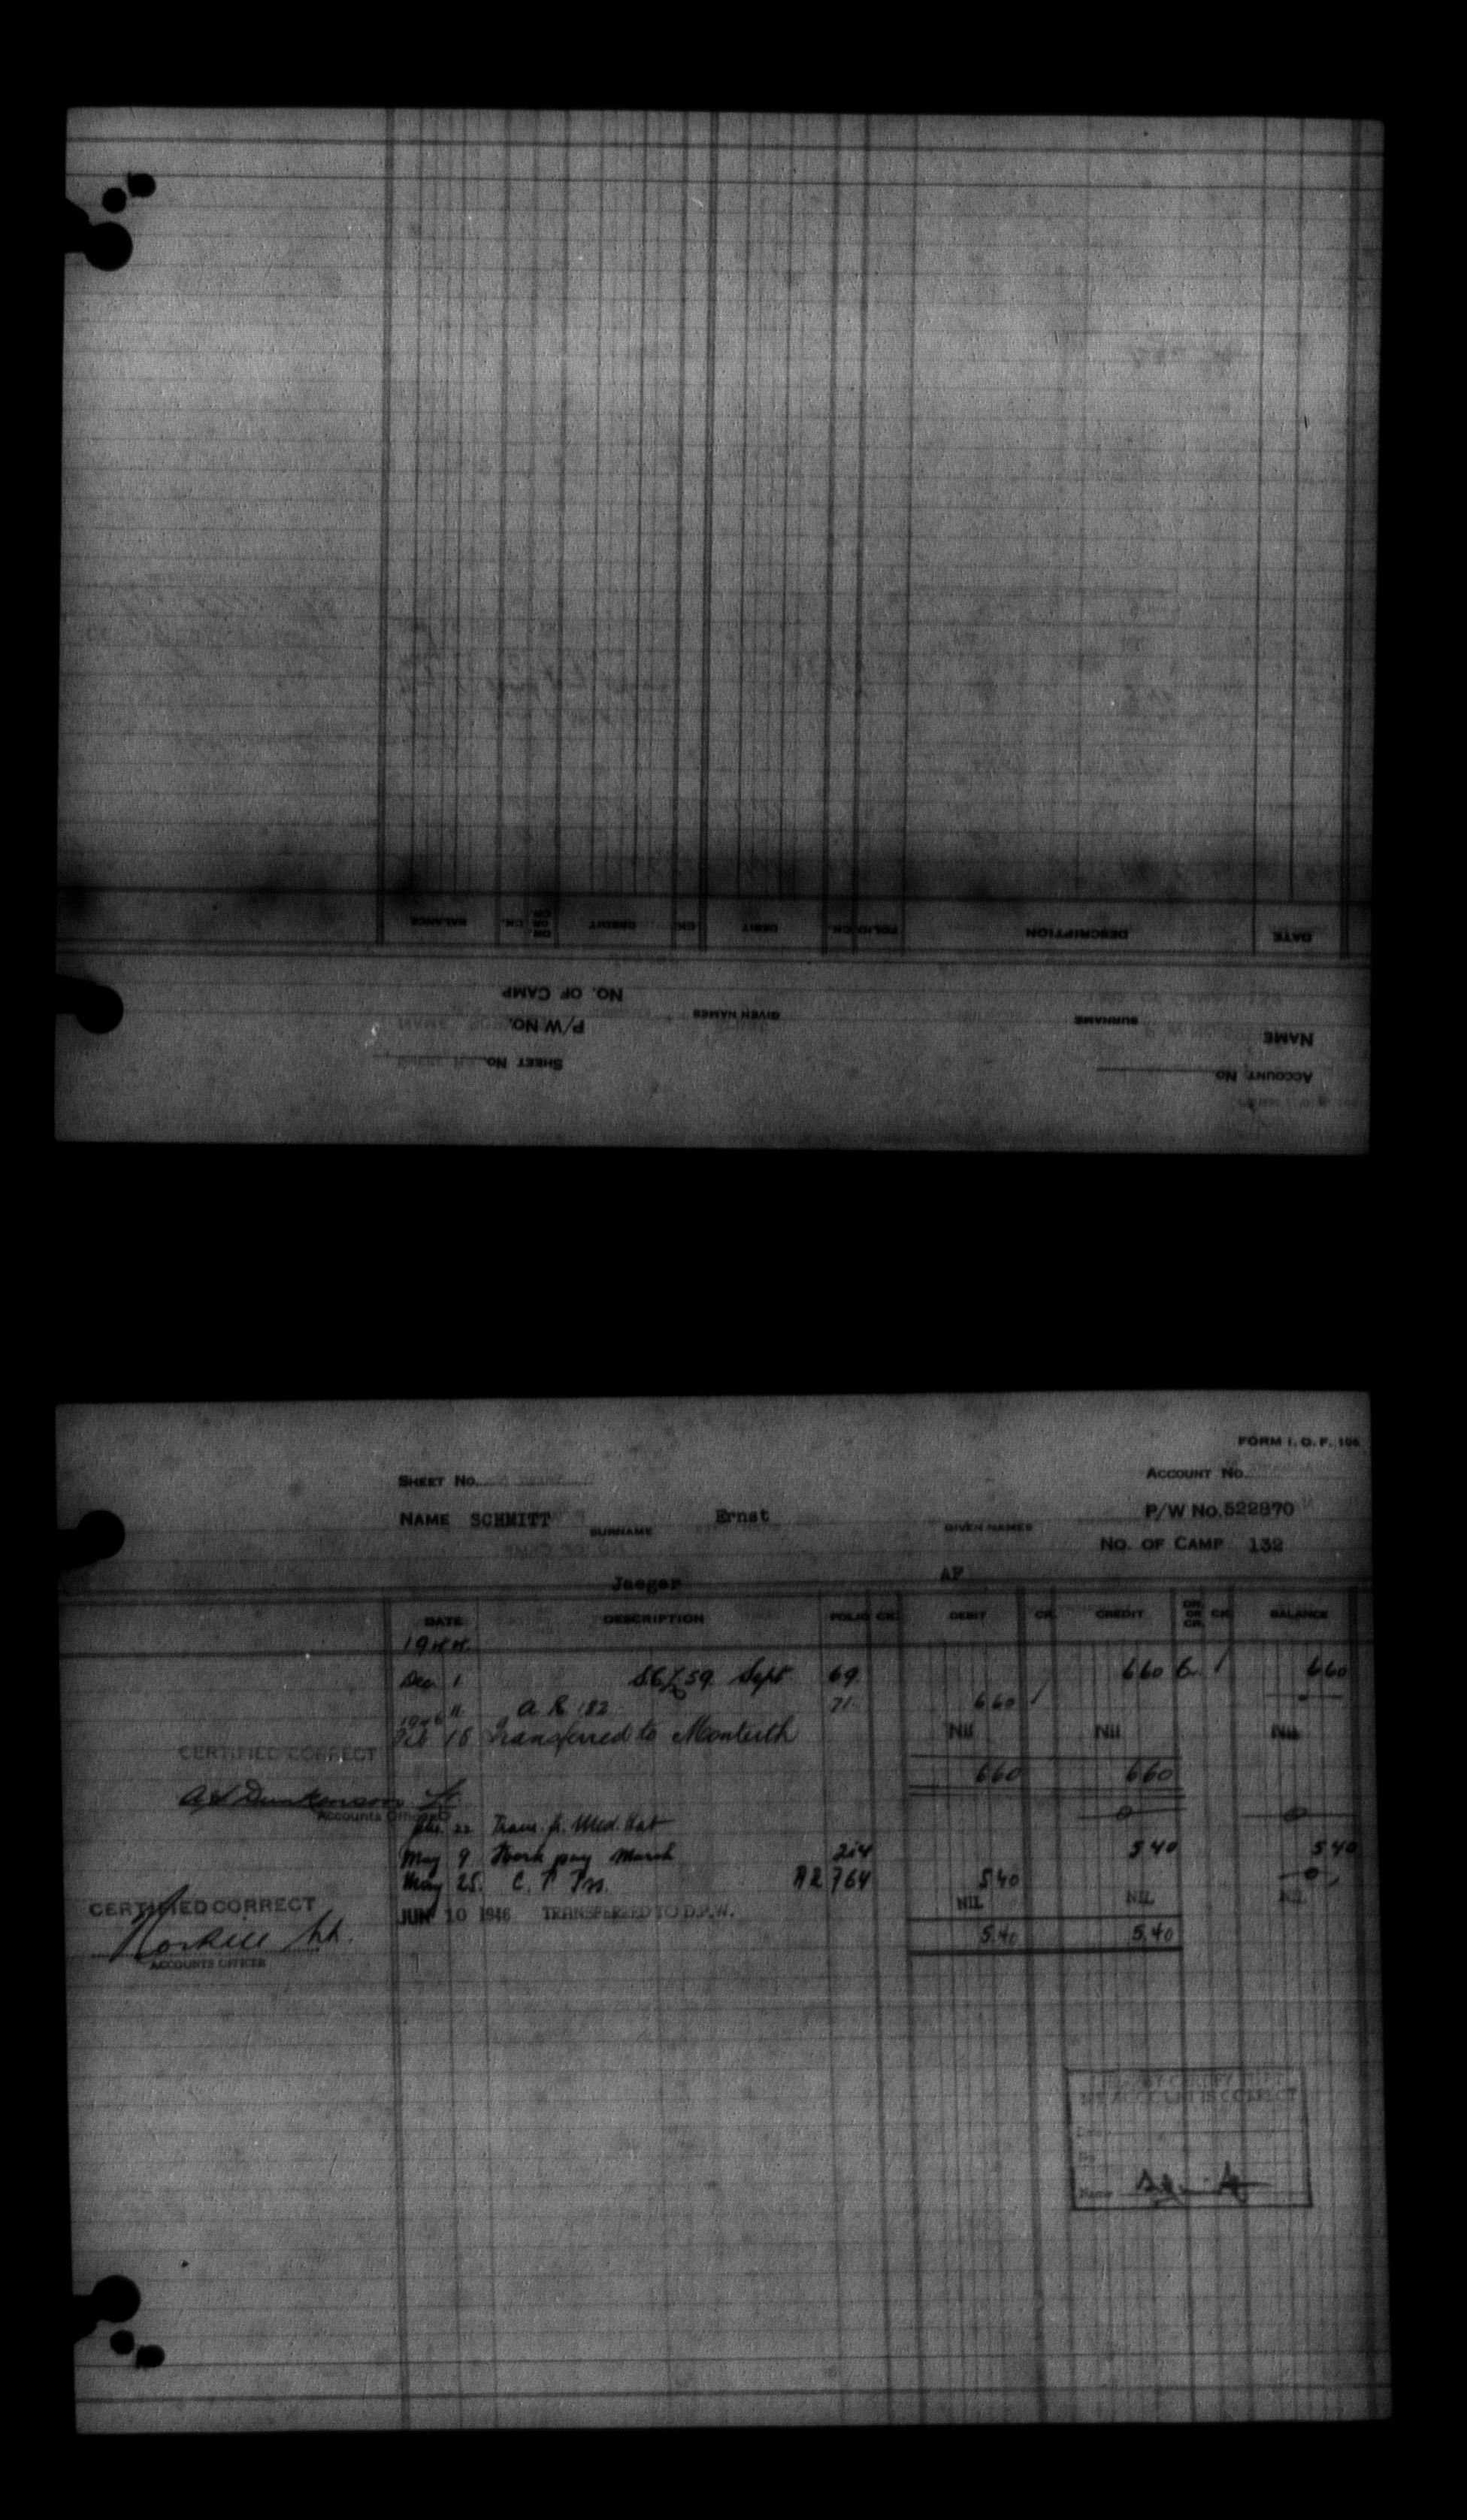 DATE DESCRIPTION FOLIO CK. DEBIT CK. CREDIT DR. OR CR. CK. BALANCE
ACCOUNT No.
SHEET No.
NAME SURNAME GIVEN NAMES P/W No.
No. OF CAMP
FORM I. O. F. 106
SHEET No. ACCOUNT No.
NAME SCHMITT SURNAME Ernst GIVEN NAMES P/W No. 522870
No. OF CAMP 132
Jaeger AF
DATE DESCRIPTION FOLIO CK. DEBIT CK. CREDIT DR. OR CR. CK. BALANCE
1944
Dec 1 59 Sept. 69 660 Cr. 660
11 A R 182 71 660
1946
Feb 18 Transferred to Monteith Nil Nil Nil
CERTIFIED CORRECT
660 660
Lt.
Accounts Officer
22 Trans. fr. Med. Hat 0 0
May 9 Work pay March 214 540 540
May 25. C. T. AR 764 540 0
CERTIFIED CORRECT
JUN 10 1946 TRANSFERRED TO D.P.W. NIL NIL NIL
5.40 5.40
ACCOUNTS OFFICER
I HEREBY CERTIFY THAT
MY ACCOUNT IS CORRECT
Date
No
Name